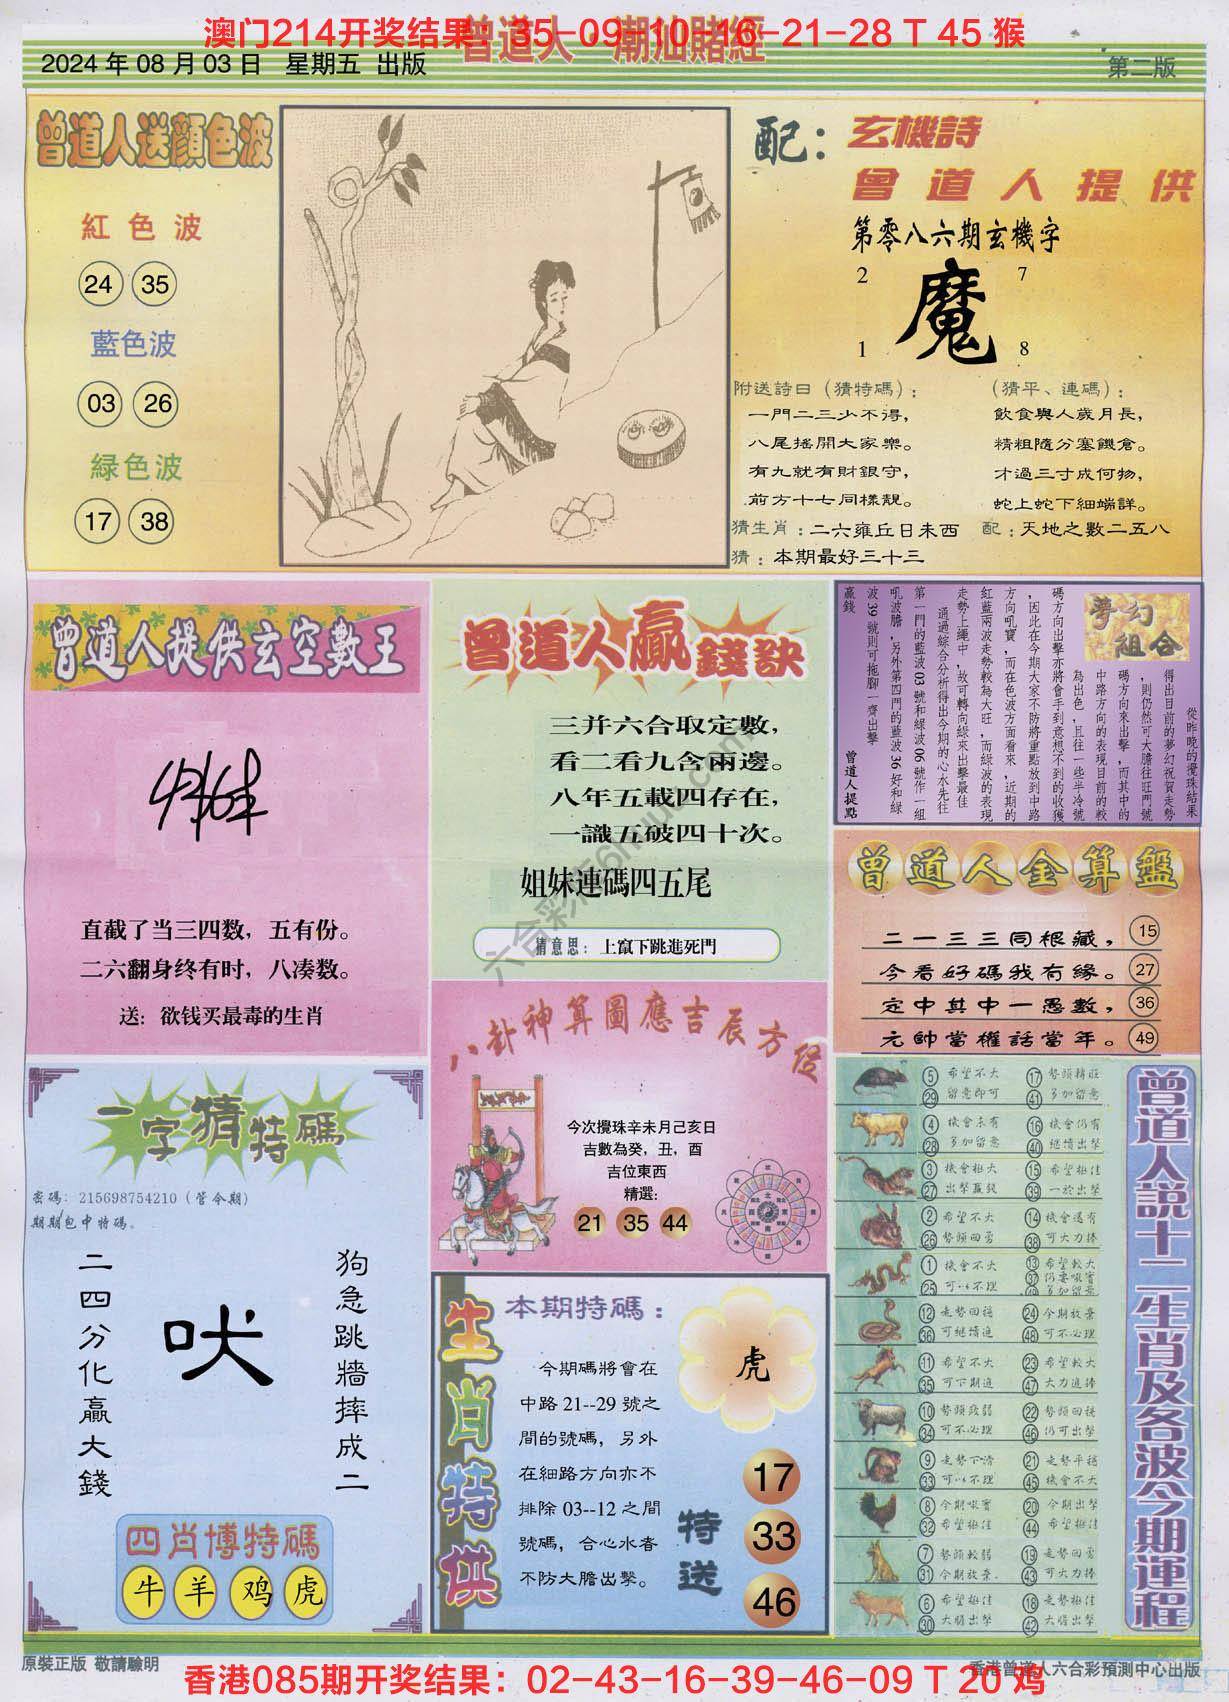 澳门214开奖结果：35-09-10-16-21-28 T 45 猴
曾道人·潮汕賭經
2024 年 08 月 03 日 星期五 出版
第二版
曾道人送顔色波
紅色波
24 35
藍色波
03 26
緑色波
17 38
配：
玄機詩
曾道人提供
第零八六期玄機字
2 7
魔
1 8
附送詩曰（猜特碼）：
一門二三少不得，
八尾摇開大家樂。
有九就有財銀守，
前方十七同樣靚。
（猜平、連碼）：
飲食與人歲月長，
精粗隨分塞饑倉。
才過三寸成何物，
蛇上蛇下細端詳。
猜生肖：二六雍丘日未西
配：天地之數二五八
猜：本期最好三十三
曾道人提供玄空數王
直截了当三四数，五有份。
二六翻身终有时，八凑数。
送：欲钱买最毒的生肖
曾道人贏錢訣
三并六合取定數，
看二看九含兩邊。
八年五載四存在，
一識五破四十次。
姐妹連碼四五尾
猜意思：上竄下跳進死門
夢幻組合
從昨晚的攪珠結果
得出目前的夢幻祝賀走勢
，則仍然可大膽往旺門號
碼方向來出擊，而其中的
中路方向的表現目前的較
為出色，且往一些半冷號
碼方向出擊亦將會手到意想不到的收獲
，因此在今期大家不防將重點放到中路
方向吼寶，而在色波方面看來，近期的
紅藍兩波走勢較為大旺，而綠波的表現
走勢上繩中，故可轉向綠來出擊最佳
通過綜合分析得出今期的心水先往
第一門的藍波 03 號和綠波 06 號作一組
吼波膽，另外第四門的藍波 36 好和綠
波 39 號則可拖腳一齊出擊
贏錢
曾道人提點
曾道人金算盤
二一三三同根藏， 15
今看好碼我有緣。 27
定中其中一愚數， 36
元帥當權話當年。 49
八卦神算圖應吉辰方位
今次攪珠辛未月己亥日
吉數為癸，丑，酉
吉位東西
精選：
21 35 44
一字猜特碼
密碼：215698754210（管令期）
期期包中特碼。
二四分化贏大錢
吠
狗急跳牆摔成二
四肖博特碼
牛 羊 鸡 虎
生肖特供
本期特碼：
今期碼將會在
中路 21--29 號之
間的號碼，另外
在細路方向亦不
排除 03--12 之間
號碼，合心水者
不防大膽出擊。
虎
特送
17
33
46
曾道人説十二生肖及各波今期運程
5 希望不大 17 勢頭精旺
29 留意即可 41 多加留意
4 機會未有 16 機會仍有
28 多加留意 40 繼續出擊
3 機會極大 15 希望極佳
27 出擊贏錢 39 一於出擊
2 希望不大 14 機會還有
26 勢頭回勇 38 可大力捧
1 機會不大 13 希望較大
25 可以不理
12 走勢回穩 24 今期放棄
36 可繼續進 48 可不必理
11 希望不大 23 希望較大
35 可下期進 47 大力進捧
10 勢頭致弱 22 勢頭回穩
34 可不必理 46 仍可出擊
9 走勢下滑 21 走勢平穩
33 可以不理 45 機會不大
8 今期吼實 20 今期出擊
32 希望極佳 44 希望極佳
7 勢頭較弱 19 走勢回勇
31 今期放棄. 43 可大力捧
6 希望極佳 18 走勢極佳
30 大膽出擊 42 大膽出擊
六合彩库6hmuc.com
原裝正版 敬請驗明
香港曾道人六合彩預測中心出版
香港085期开奖结果：02-43-16-39-46-09 T 20 鸡